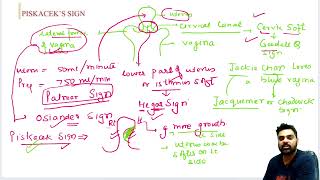 PISKACEK'S SIGN
uterus
lateral fornix
& vagina
cervical canal
vagina
Cervix soft
Goodell's
Sign
Norm = 50ml/minute
Preg = 750 ml/min
Palmar Sign
lower part of uterus
or isthmus soft
Hegar Sign
Jackie Chan loves
blue vagina
Jacquemier or chadwick
sign
Osiander Sign
Piskacek Sign
Rt
more growth
uterus
side